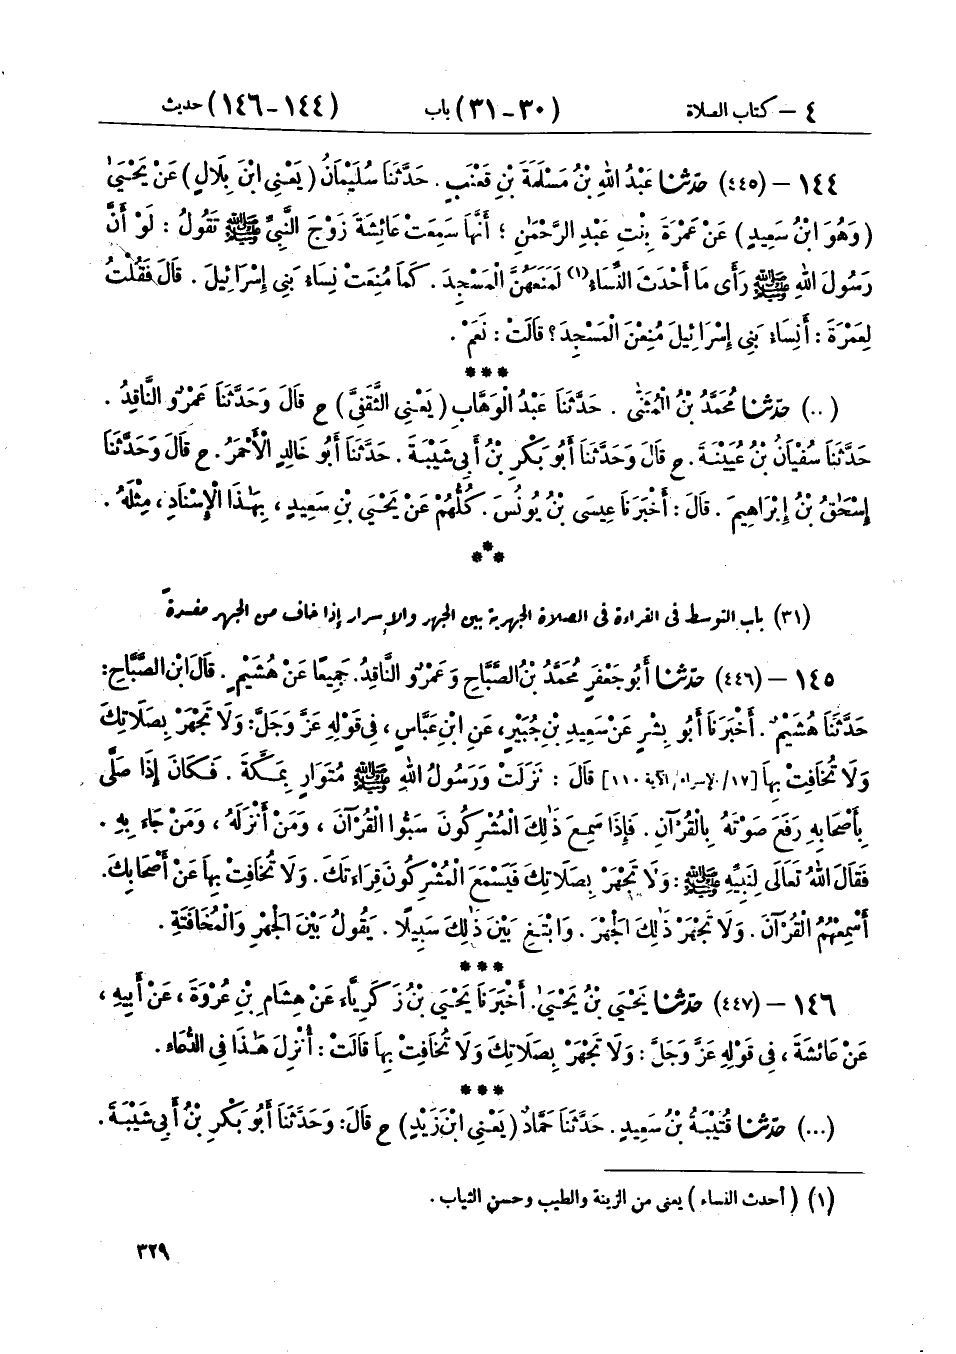 ٤ – كتاب الصلاة (٣٠-٣١) باب (١٤٤-١٤٦) حديث
١٤٤ – (٤٤٥) حَدَّثَنَا عَبْدُ اللهِ بْنُ مَسْلَمَةَ بْنِ قَعْنَبٍ . حَدَّثَنَا سُلَيْمَانُ ( يَعْنِي ابْنَ بِلَالٍ ) عَنْ يَحْيَىٰ
( وَهُوَ ابْنُ سَعِيدٍ ) عَنْ عَمْرَةَ بِنْتِ عَبْدِ الرَّحْمَٰنِ ؛ أَنَّهَا سَمِعَتْ عَائِشَةَ زَوْجَ النَّبِيِّ ﷺ تَقُولُ : لَوْ أَنَّ
رَسُولَ اللهِ ﷺ رَأَى مَا أَحْدَثَ النِّسَاءُ (١) لَمَنَعَهُنَّ الْمَسْجِدَ . كَمَا مُنِعَتْ نِسَاءُ بَنِي إِسْرَائِيلَ . قَالَ فَقُلْتُ
لِعَمْرَةَ : أَنِسَاءُ بَنِي إِسْرَائِيلَ مُنِعْنَ الْمَسْجِدَ ؟ قَالَتْ : نَعَمْ .
***
(..) حَدَّثَنَا مُحَمَّدُ بْنُ الْمُثَنَّىٰ . حَدَّثَنَا عَبْدُ الْوَهَّابِ ( يَعْنِي الثَّقَفِيَّ ) ح قَالَ وَحَدَّثَنَا عَمْرٌو النَّاقِدُ .
حَدَّثَنَا سُفْيَانُ بْنُ عُيَيْنَةَ . ح قَالَ وَحَدَّثَنَا أَبُو بَكْرِ بْنُ أَبِي شَيْبَةَ . حَدَّثَنَا أَبُو خَالِدٍ الْأَحْمَرُ . ح قَالَ وَحَدَّثَنَا
إِسْحَٰقُ بْنُ إِبْرَاهِيمَ . قَالَ : أَخْبَرَنَا عِيسَى بْنُ يُونُسَ . كُلُّهُمْ عَنْ يَحْيَى بْنِ سَعِيدٍ ، بِهَٰذَا الْإِسْنَادِ ، مِثْلَهُ .
***
(٣١) باب التوسط في القراءة في الصلاة الجهرية بين الجهر والإسرار إذا خاف من الجهر مفسدة
١٤٥ – (٤٤٦) حَدَّثَنَا أَبُو جَعْفَرٍ مُحَمَّدُ بْنُ الصَّبَّاحِ وَعَمْرٌو النَّاقِدُ . جَمِيعًا عَنْ هُشَيْمٍ . قَالَ ابْنُ الصَّبَّاحِ :
حَدَّثَنَا هُشَيْمٌ . أَخْبَرَنَا أَبُو بِشْرٍ عَنْ سَعِيدِ بْنِ جُبَيْرٍ ، عَنِ ابْنِ عَبَّاسٍ ، فِي قَوْلِهِ عَزَّ وَجَلَّ : وَلَا تَجْهَرْ بِصَلَاتِكَ
وَلَا تُخَافِتْ بِهَا [١٧/الإسراء/الآية ١١٠] قَالَ : نَزَلَتْ وَرَسُولُ اللهِ ﷺ مُتَوَارٍ بِمَكَّةَ . فَكَانَ إِذَا صَلَّى
بِأَصْحَابِهِ رَفَعَ صَوْتَهُ بِالْقُرْآنِ . فَإِذَا سَمِعَ ذَٰلِكَ الْمُشْرِكُونَ سَبُّوا الْقُرْآنَ ، وَمَنْ أَنْزَلَهُ ، وَمَنْ جَاءَ بِهِ .
فَقَالَ اللهُ تَعَالَى لِنَبِيِّهِ ﷺ : وَلَا تَجْهَرْ بِصَلَاتِكَ فَيَسْمَعَ الْمُشْرِكُونَ قِرَاءَتَكَ . وَلَا تُخَافِتْ بِهَا عَنْ أَصْحَابِكَ .
أَسْمِعْهُمُ الْقُرْآنَ . وَلَا تَجْهَرْ ذَٰلِكَ الْجَهْرَ . وَابْتَغِ بَيْنَ ذَٰلِكَ سَبِيلًا . يَقُولُ بَيْنَ الْجَهْرِ وَالْمُخَافَتَةِ .
***
١٤٦ – (٤٤٧) حَدَّثَنَا يَحْيَى بْنُ يَحْيَىٰ . أَخْبَرَنَا يَحْيَى بْنُ زَكَرِيَّاءَ عَنْ هِشَامِ بْنِ عُرْوَةَ ، عَنْ أَبِيهِ ،
عَنْ عَائِشَةَ ، فِي قَوْلِهِ عَزَّ وَجَلَّ : وَلَا تَجْهَرْ بِصَلَاتِكَ وَلَا تُخَافِتْ بِهَا قَالَتْ : أُنْزِلَ هَٰذَا فِي الدُّعَاءِ .
***
(...) حَدَّثَنَا قُتَيْبَةُ بْنُ سَعِيدٍ . حَدَّثَنَا حَمَّادٌ ( يَعْنِي ابْنَ زَيْدٍ ) ح قَالَ : وَحَدَّثَنَا أَبُو بَكْرِ بْنُ أَبِي شَيْبَةَ .
(١) ( أحدث النساء ) يعنى من الزينة والطيب وحسن الثياب .
٣٢٩